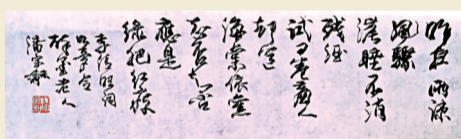 昨夜雨疎
風驟
濃睡不消
残酒
试问卷簾人
却道
海棠依舊
知否知否
應是
绿肥红瘦
李清照词
如夢令
墨老人